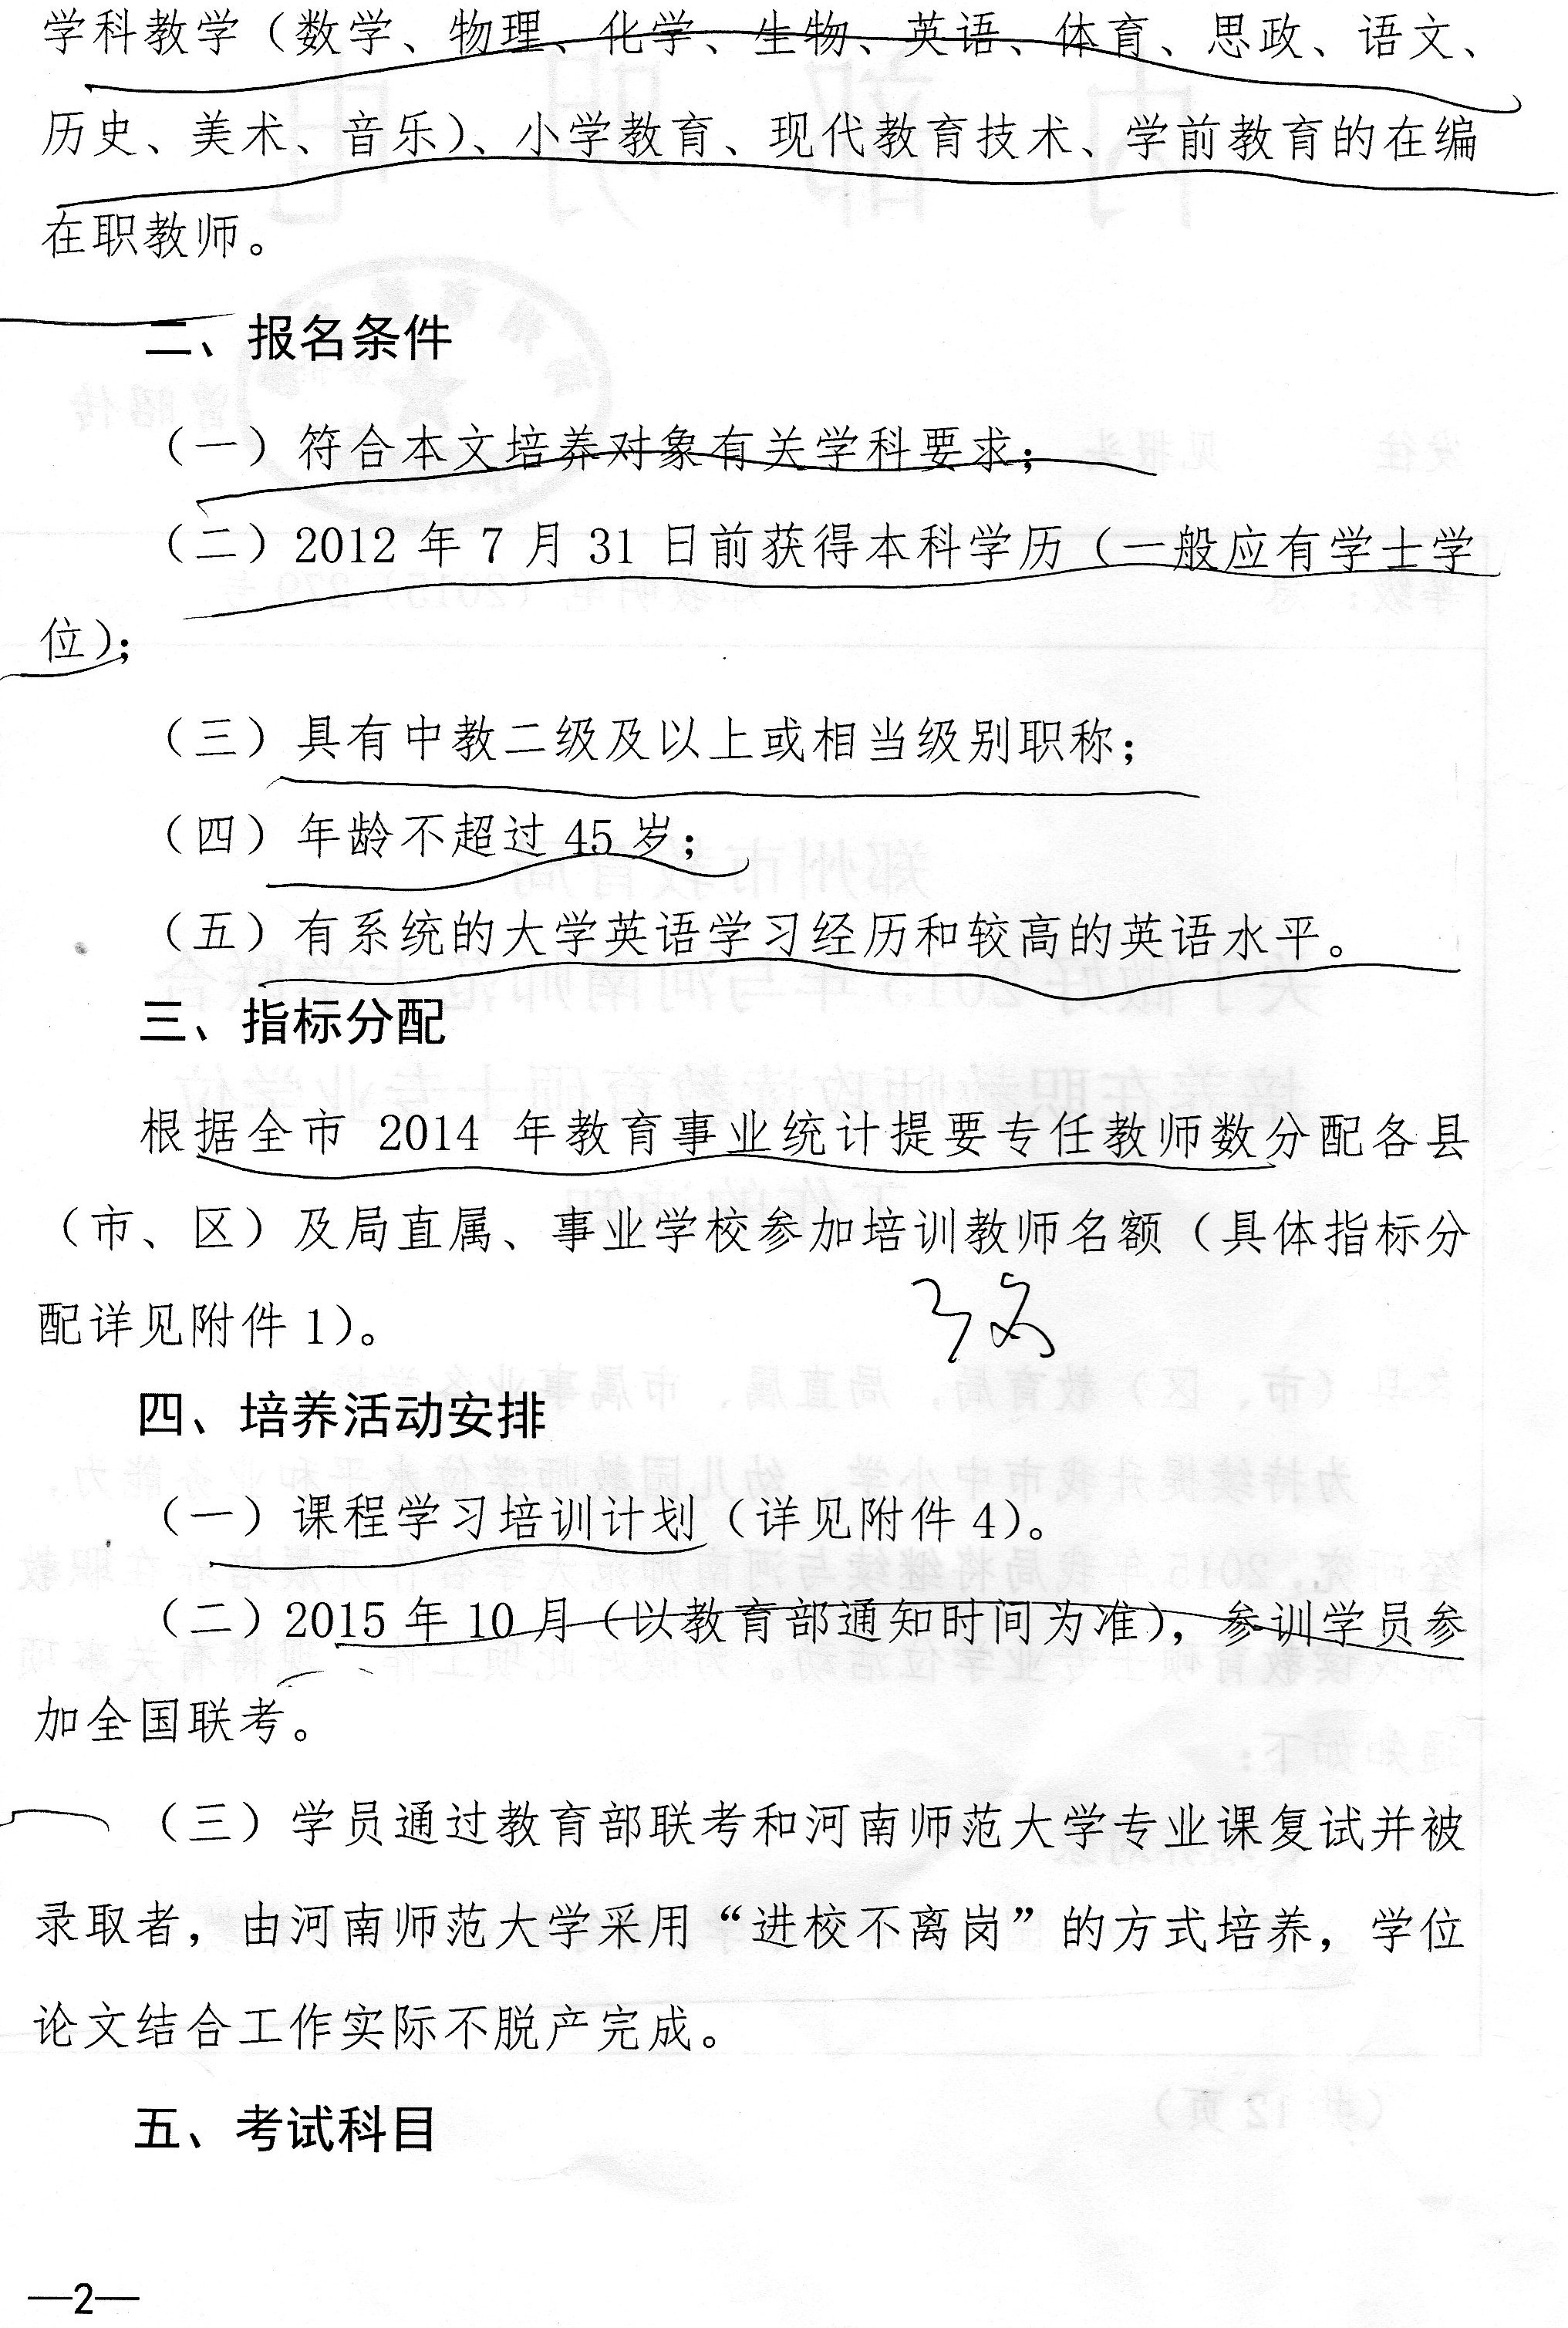 学科教学（数学、物理、化学、生物、英语、体育、思政、语文、
历史、美术、音乐）、小学教育、现代教育技术、学前教育的在编
在职教师。
二、报名条件
（一）符合本文培养对象有关学科要求；
（二）2012 年 7 月 31 日前获得本科学历（一般应有学士学
位）；
（三）具有中教二级及以上或相当级别职称；
（四）年龄不超过 45 岁；
（五）有系统的大学英语学习经历和较高的英语水平。
三、指标分配
根据全市 2014 年教育事业统计提要专任教师数分配各县
（市、区）及局直属、事业学校参加培训教师名额（具体指标分
配详见附件 1）。
四、培养活动安排
（一）课程学习培训计划（详见附件 4）。
（二）2015 年 10 月（以教育部通知时间为准），参训学员参
加全国联考。
（三）学员通过教育部联考和河南师范大学专业课复试并被
录取者，由河南师范大学采用“进校不离岗”的方式培养，学位
论文结合工作实际不脱产完成。
五、考试科目
—2—